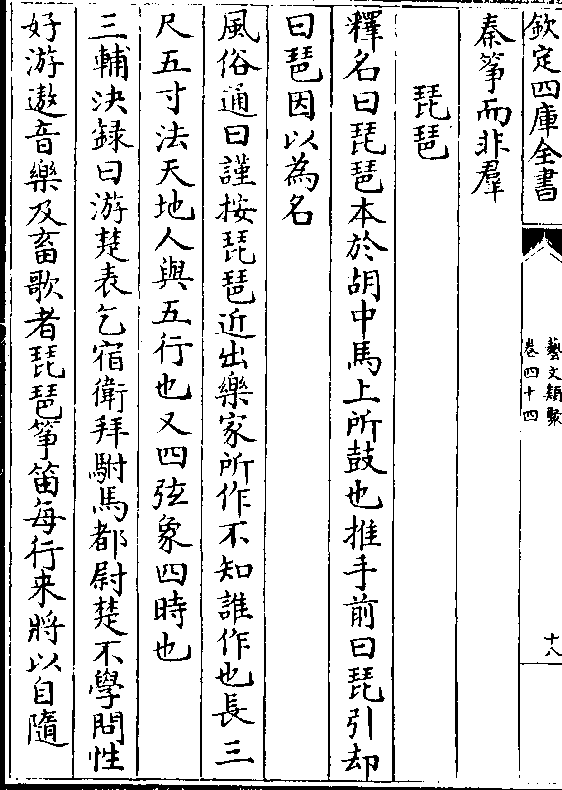 欽定四庫全書
藝文類聚
卷四十四
十八
秦箏而非羣
琵琶
釋名曰琵琶本於胡中馬上所鼓也推手前曰琵引却
曰琶因以為名
風俗通曰謹按琵琶近出樂家所作不知誰作也長三
尺五寸法天地人與五行也又四弦象四時也
三輔決録曰游楚表乞宿衛拜駙馬都尉楚不學問性
好游遨音樂及畜歌者琵琶箏笛每行来將以自隨